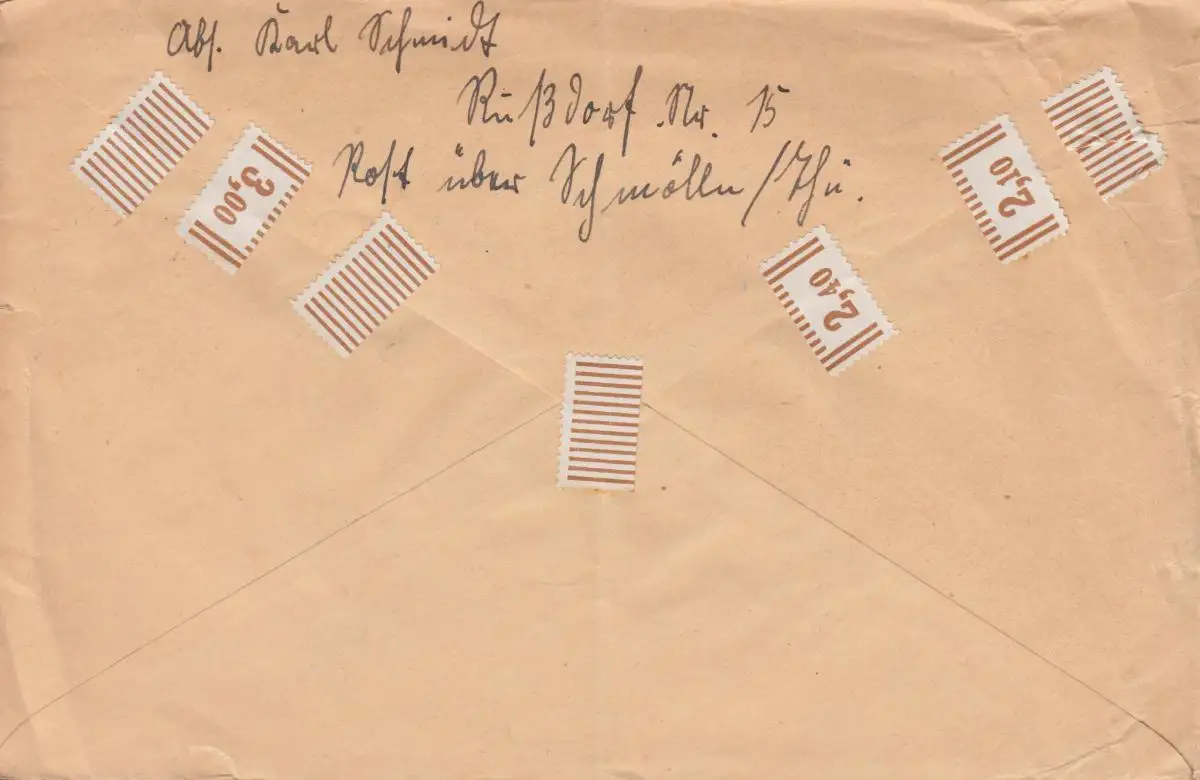 Abs. Karl Schmidt
Rußdorf Nr. 15
Post über Schmölln/Thü.
3,00
2,10
2,40